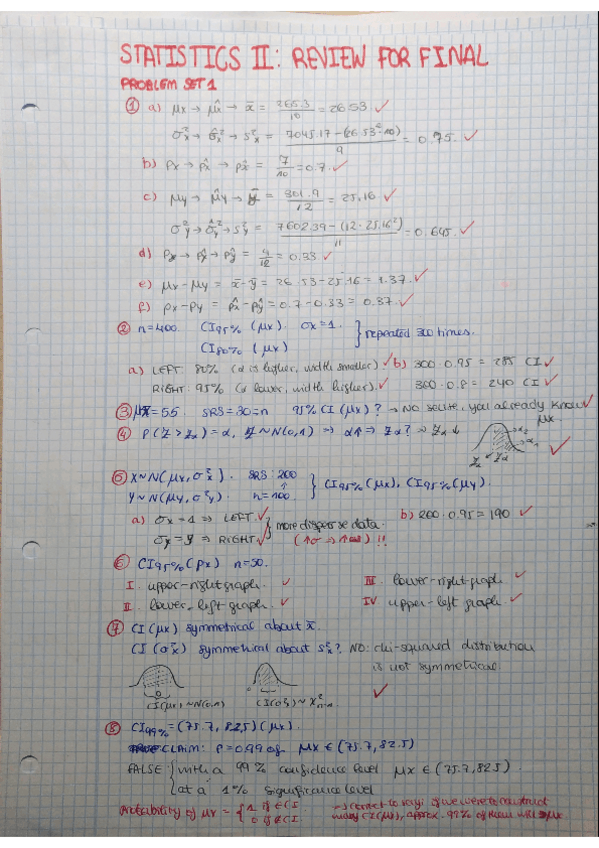 STATISTICS II: REVIEW FOR FINAL
PROBLEM SET 1
① a) μx → μ̂x → x̄ = 265.3/10 = 26.53 ✓
σ²x → σ̂²x → s²x = 7045.17 - (26.53²·10)/9 = 0.75. ✓
b) px → p̂x → p̂x = 7/10 = 0.7. ✓
c) μy → μ̂y → ȳ = 301.9/12 = 25.16 ✓
σ²y → σ̂²y → s²y = 7602.39 - (12·25.16²)/11 = 0.645. ✓
d) py → p̂y → p̂y = 4/12 = 0.33. ✓
e) μx - μy = x̄ - ȳ = 26.53 - 25.16 = 1.37. ✓
f) px - py = p̂x - p̂y = 0.7 - 0.33 = 0.37. ✓
② n=400. CI95% (μx). σx = 1. } repeated 300 times.
CI80% (μx)
a) LEFT: 80% (α is higher, width smaller) ✓ b) 300·0.95 = 285 CI ✓
RIGHT: 95% (α lower, width higher). ✓ 300·0.8 = 240 CI ✓
③ = 55. SRS = 30 = n 95% CI (μx)? → No sense, you already know ✓
μx.
④ P(Z > Zα) = α, Z ~ N(0,1) ⇒ α↑ ⇒ Zα? → Zα ↓ ✓
⑤ X ~ N(μx, σ²x). SRS: 200 } CI95% (μx), CI95% (μy).
Y ~ N(μy, σ²y). n = 100
a) σx = 1 ⇒ LEFT ✓ } more disperse data. b) 200·0.95 = 190 ✓
⇒ RIGHT ✓
⑥ CI95% (px) n=50.
I. upper-right graph. ✓ III. lower-right graph. ✓
II. lower-left graph. ✓ IV upper-left graph. ✓
⑦ CI (μx) symmetrical about x̄.
CI (σ²x) symmetrical about s²x? NO: chi-squared distribution
is not symmetrical.
CI(μx) ~ N(0,1) CI(σ²x) ~ χ²n-1 ✓
⑧ CI99% = (75.7, 82.5) (μx).
CLAIM: P = 0.99 of μx ∈ (75.7, 82.5)
FALSE: { with a 99% confidence level μx ∈ (75.7, 82.5).
at a 1% significance level
Probability of μx = { 1 if ∈ CI → correct to say: if we were to construct
0 if ∉ CI many CI(μx), approx. 99% of them will